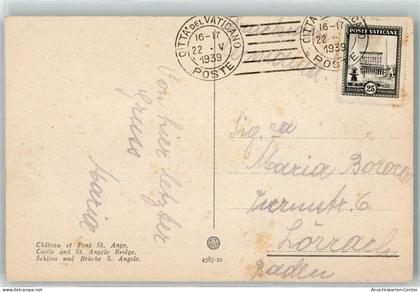 CITTÀ DEL VATICANO
16-17
22 · V
1939
POSTE
CITTÀ DEL VATICANO
16-17
22 · V
1939
POSTE
POSTE VATICANE
25
Von hier letzter
Gruss
Maria
Sig.ra
Maria
Turmstr. 6
Lörrach
Baden
Château et Pont St. Ange.
Castle and St. Angelo Bridge.
Schloss und Brücke S. Angelo.
4587-10
www.delcampe.net
Ansichtskarten-Center.de